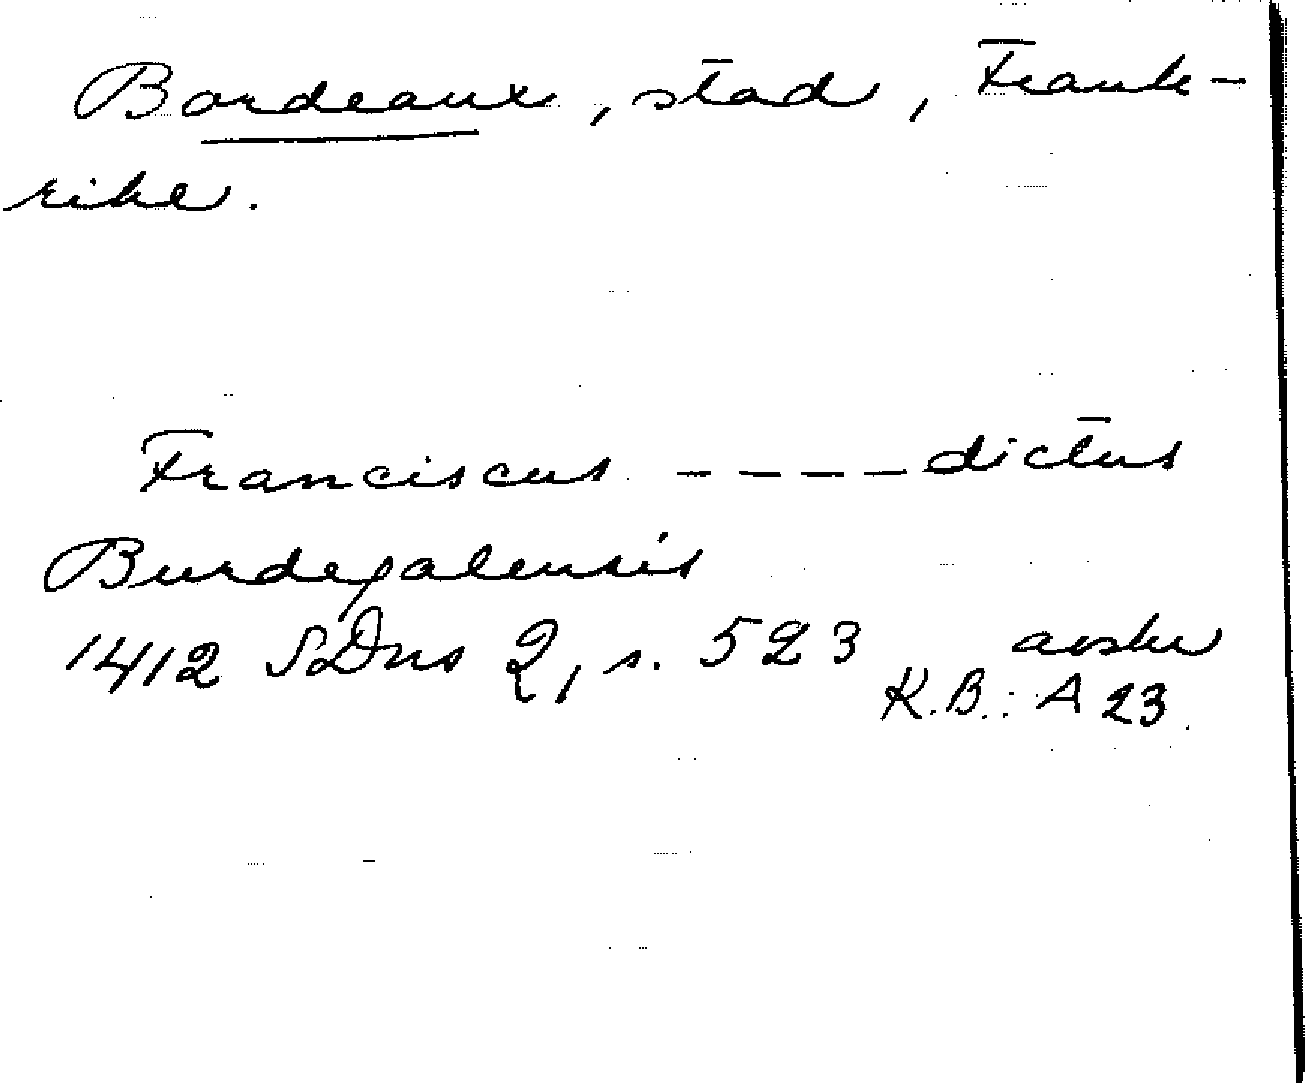 Bordeaux, stad, Frank-
rike.
Franciscus ---- dictus
Burdegalensis
1412 SDns 2, s. 523 avskr
K.B.: A 23.